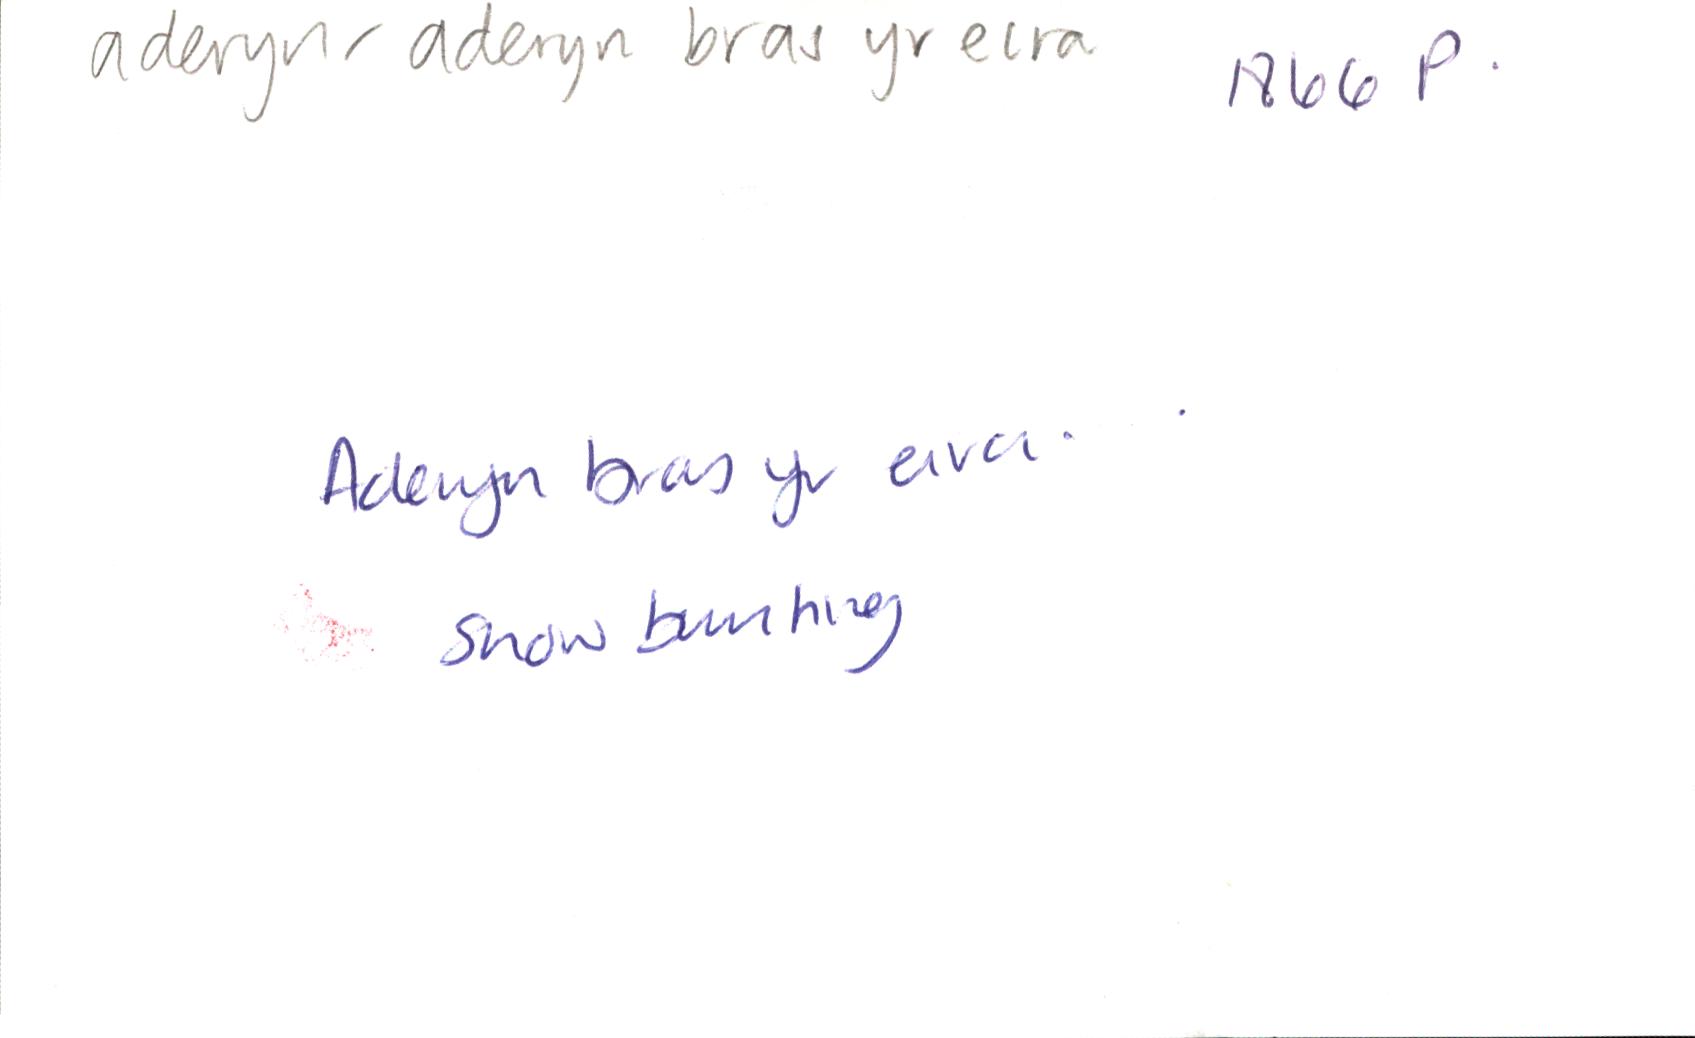 aderyn - aderyn bras yr eira 1866 P.
Aderyn bras yr eira.
snow bunting